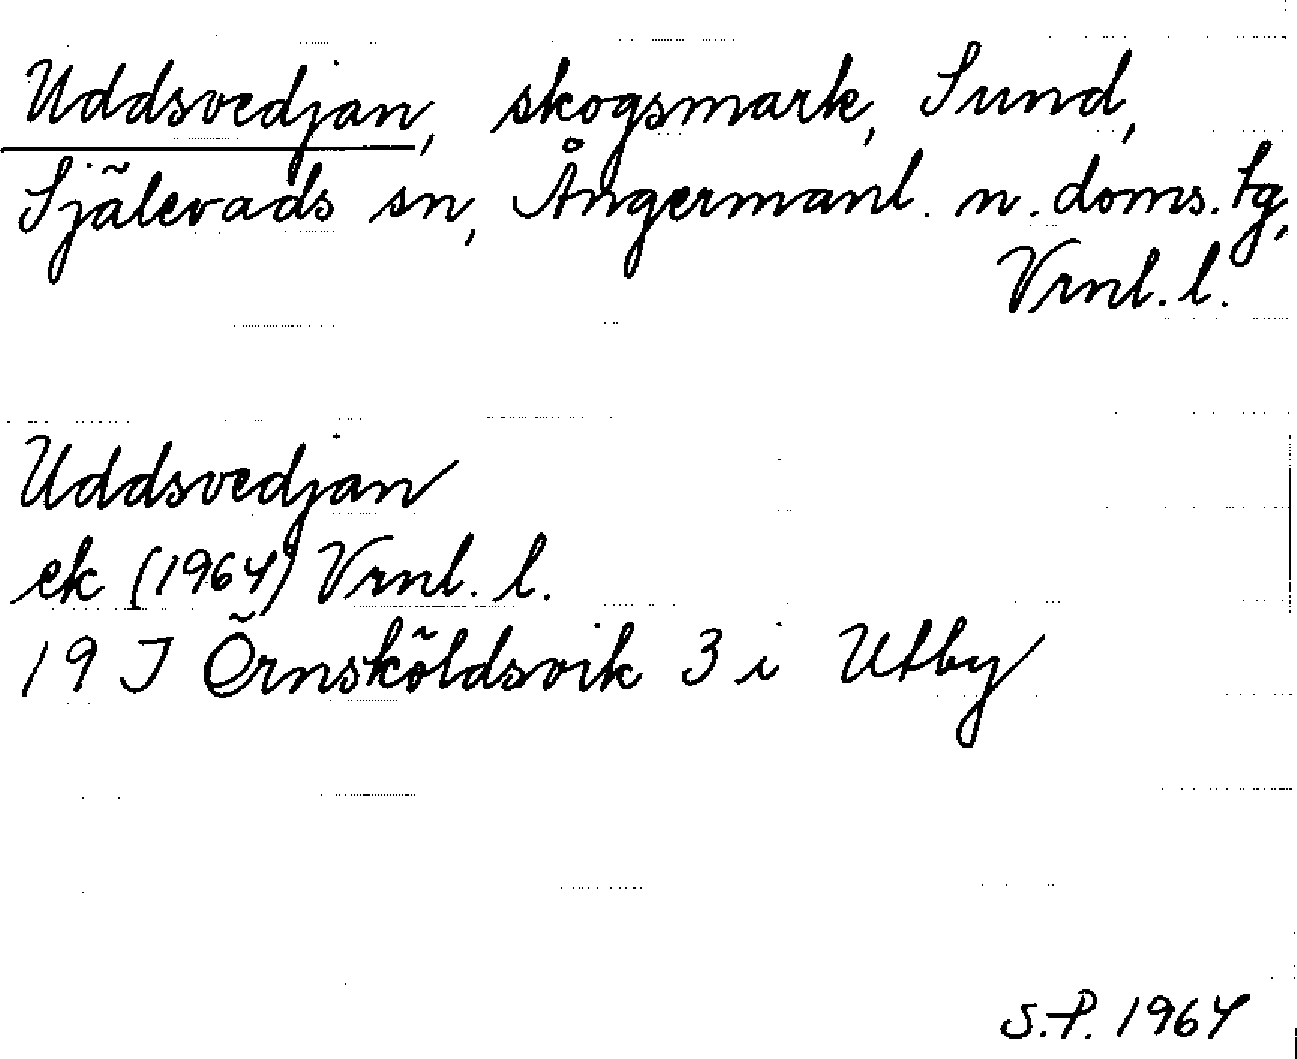 Uddsvedjan, skogsmark, Sund,
Själevads sn, Ångermanl. n. doms. tg,
Vrnl. l.
Uddsvedjan
ek (1964) Vrnl. l.
19 J Örnsköldsvik 3 i Utby
S.P. 1964